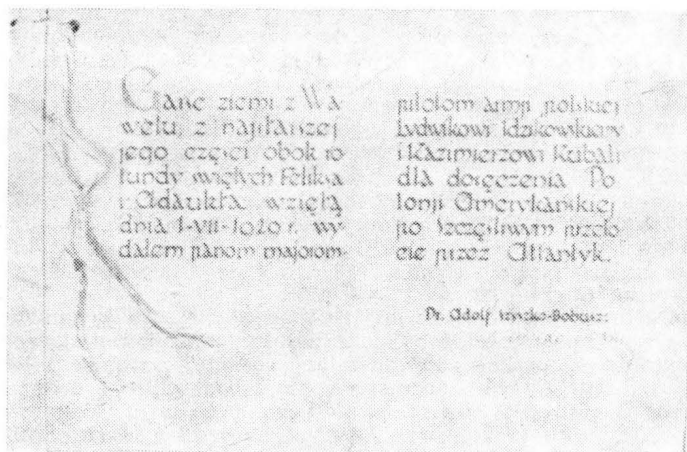 Garść ziemi z Wa
welu, z najstarszej
jego części obok ro
tundy świętych Feliksa
i Adaukta wziętą
dnia 1-VII-1929 r. wy
dałem panom majorom-
pilotom armji polskiej
Ludwikowi Idzikowskiemu
i Kazimierzowi Kubali
dla doręczenia Po
lonji Amerykańskiej
po szczęśliwym przelo
cie przez Atlantyk.
Dr. Adolf Szyszko-Bohusz